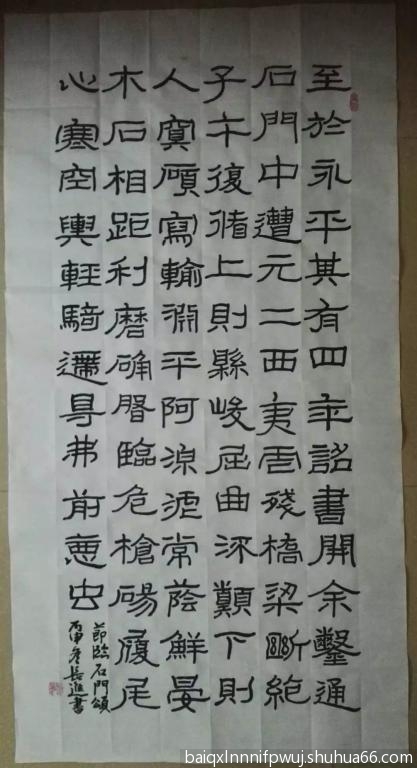 至於永平其有四年詔書開余鑿通
石門中遭元二西夷虐殘橋梁斷絶
子午復循上則縣峻屈曲流顛下則
入冥廎寫輸淵平阿湶泥常蔭鮮晏
木石相距利磨确磐臨危槍碭履尾
心寒空輿輕騎遰㝵弗前惡虫
節臨石門頌
丙申冬長進書
baiqxlnnnifpwuj.shuhua66.com